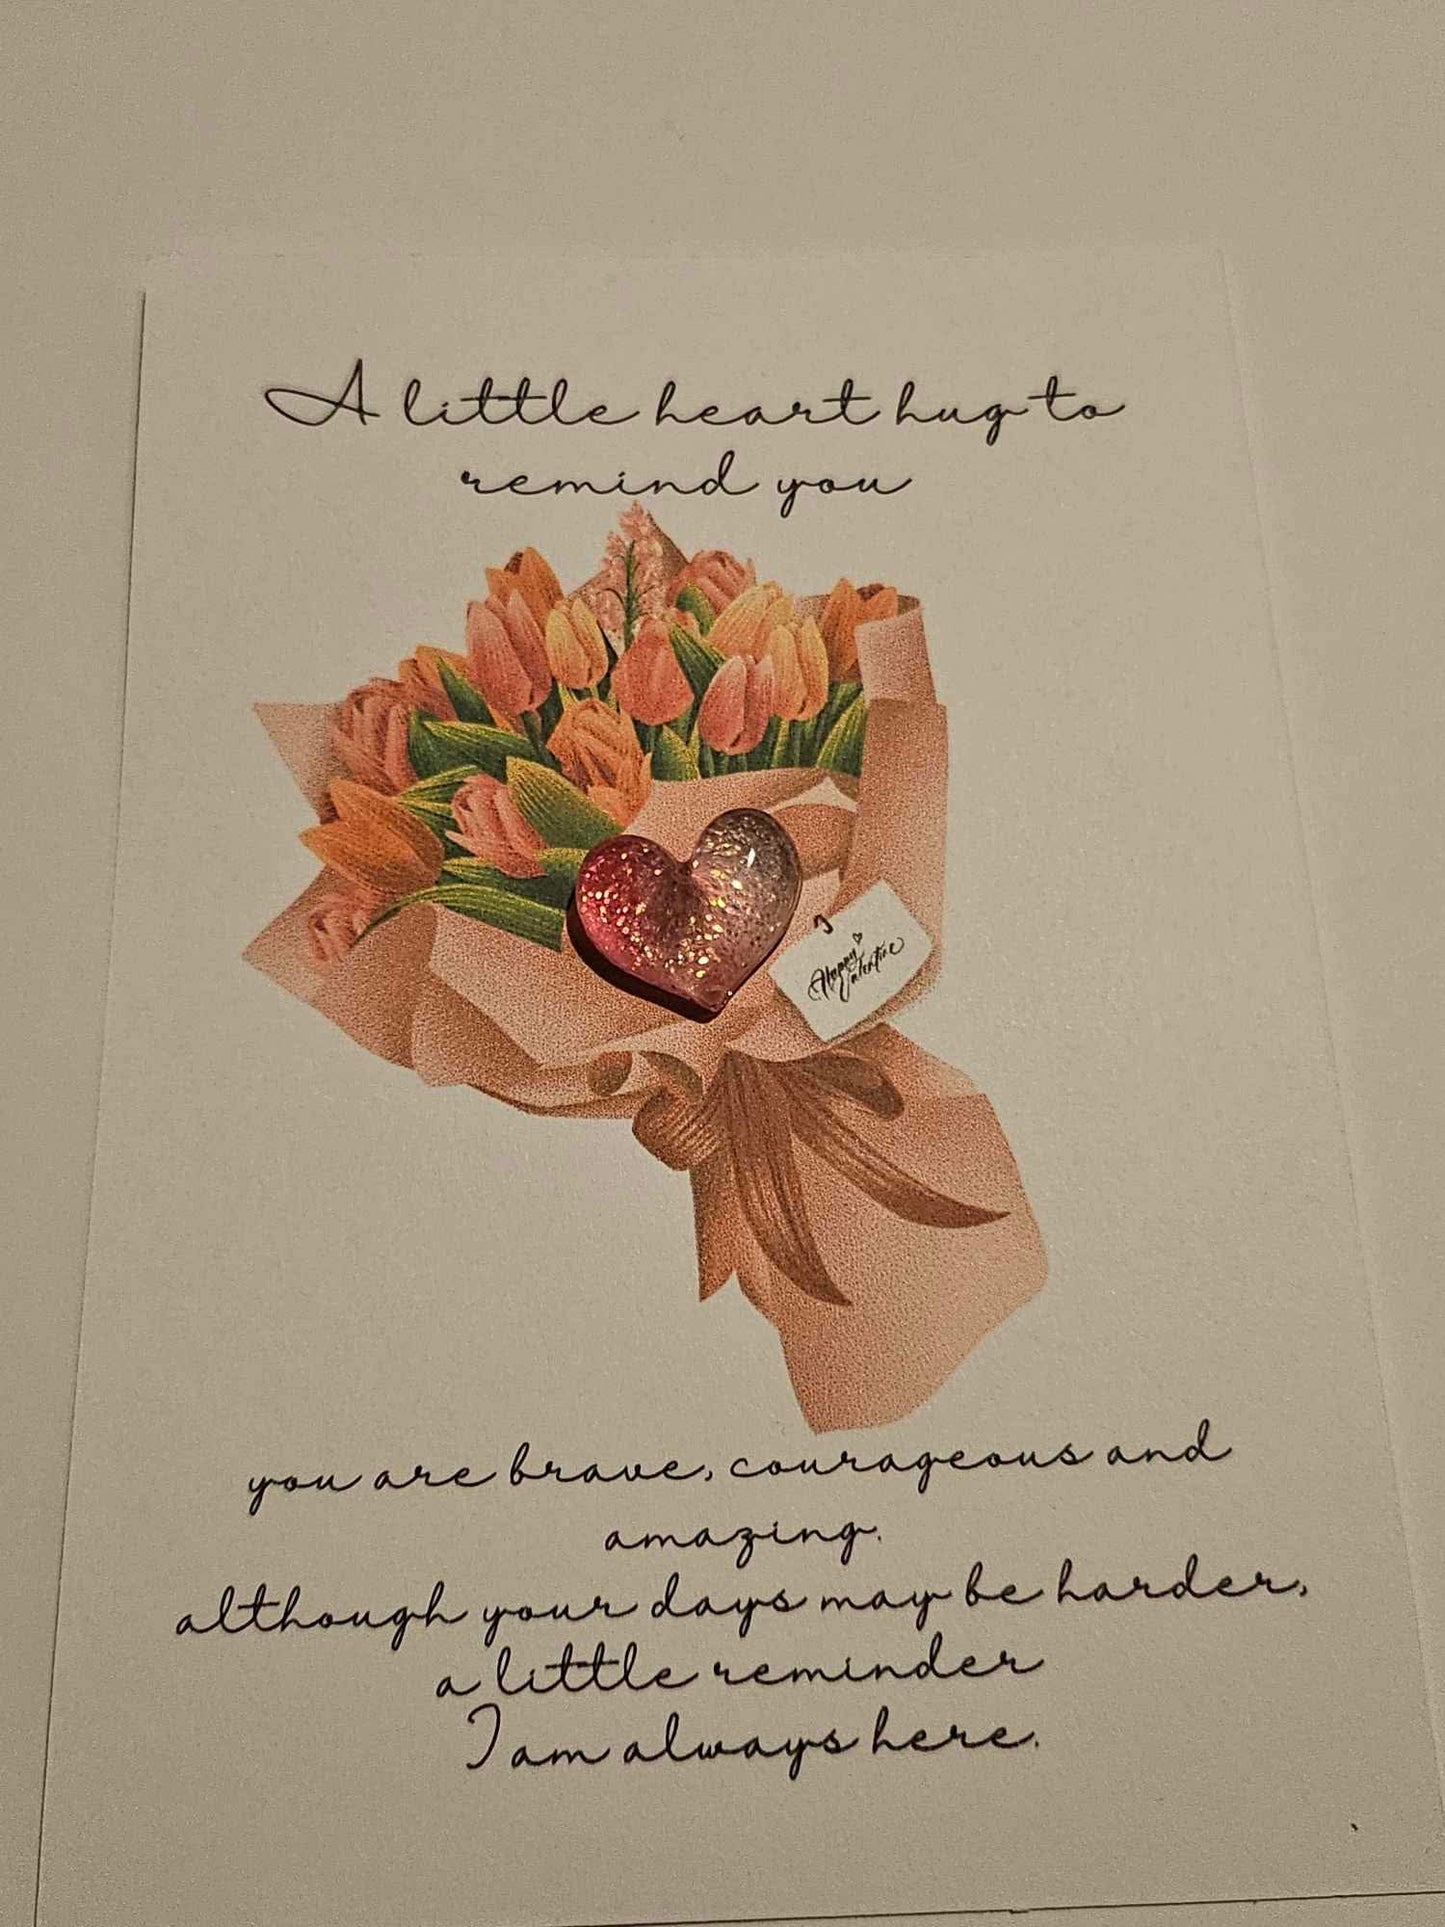 A little heart hug to
remind you
Happy
Valentine
you are brave, courageous and
amazing.
although your days may be harder,
a little reminder
I am always here.